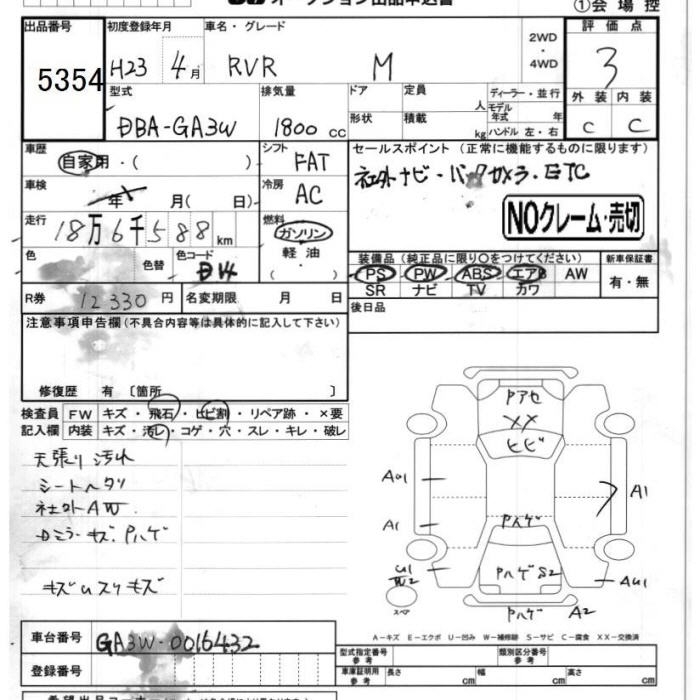 オークション出品申込書
①会場控
出品番号 初度登録年月 車名・グレード 2WD・4WD 評価点
5354 H23 4月 RVR M 3
型式 排気量 ドア 定員 人 ディーラー・並行 外装 内装
DBA-GA3W 1800 cc 形状 積載 kg モデル年式 年 ハンドル 左・右 C C
車歴 自家用・( ) シフト FAT セールスポイント (正常に機能するものに限ります)
社外ナビ・バックカメラ・ETC
車検 年 月( 日) 冷房 AC
NOクレーム・売切
走行 18万6千588km 燃料 ガソリン 軽油 ( )
色 色替 色コード
装備品 (純正品に限り○をつけてください) 新車保証書
PS PW ABS エアB AW 有・無
SR ナビ TV カワ
R券 12330円 名変期限 月 日
後日品
注意事項申告欄(不具合内容等は具体的に記入して下さい)
修復歴 有 〔箇所 〕
検査員 FW キズ・飛石・ヒビ割・リペア跡・×要
記入欄 内装 キズ・汚レ・コゲ・穴・スレ・キレ・破レ
天張り汚れ
シートヘタリ
社外AW
ドミラーキズ・Pハゲ
キズUスリキズ
Pアセ
XX
ヒビ
AU1
A1
A1
Pハゲ
U1
W2
PハゲS2
AU1
スペア
Pハゲ A2
A-キズ E-エクボ U-凹み W-補修跡 S-サビ C-腐食 XX-交換済
車台番号 GA3W-0016432
型式指定番号 参考 類別区分番号 参考
登録番号
車庫証明用 参考 長さ cm 幅 cm 高さ cm